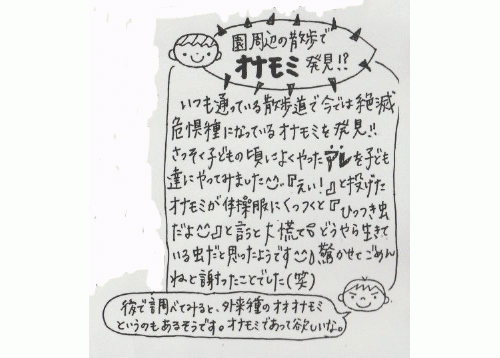 園周辺の散歩で
オナモミ発見!?
いつも通っている散歩道で今では絶滅
危惧種になっているオナモミを発見!!
さっそく子どもの頃によくやったアレを子ども
達にやってみました『えい!』と投げた
オナモミが体操服にくっつくと『ひっつき虫
だよ』と言うと大慌て。どうやら生きて
いる虫だと思ったようです驚かせてごめん
ねと謝ったことでした(笑)
後で調べてみると、外来種のオオオナモミ
というのもあるそうです。オナモミであって欲しいな。